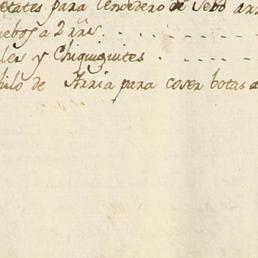 etates para tendedero de Sebo
uebos a 2 rrs.
les y Chiquiguites
hilo de Arria para coser botas a